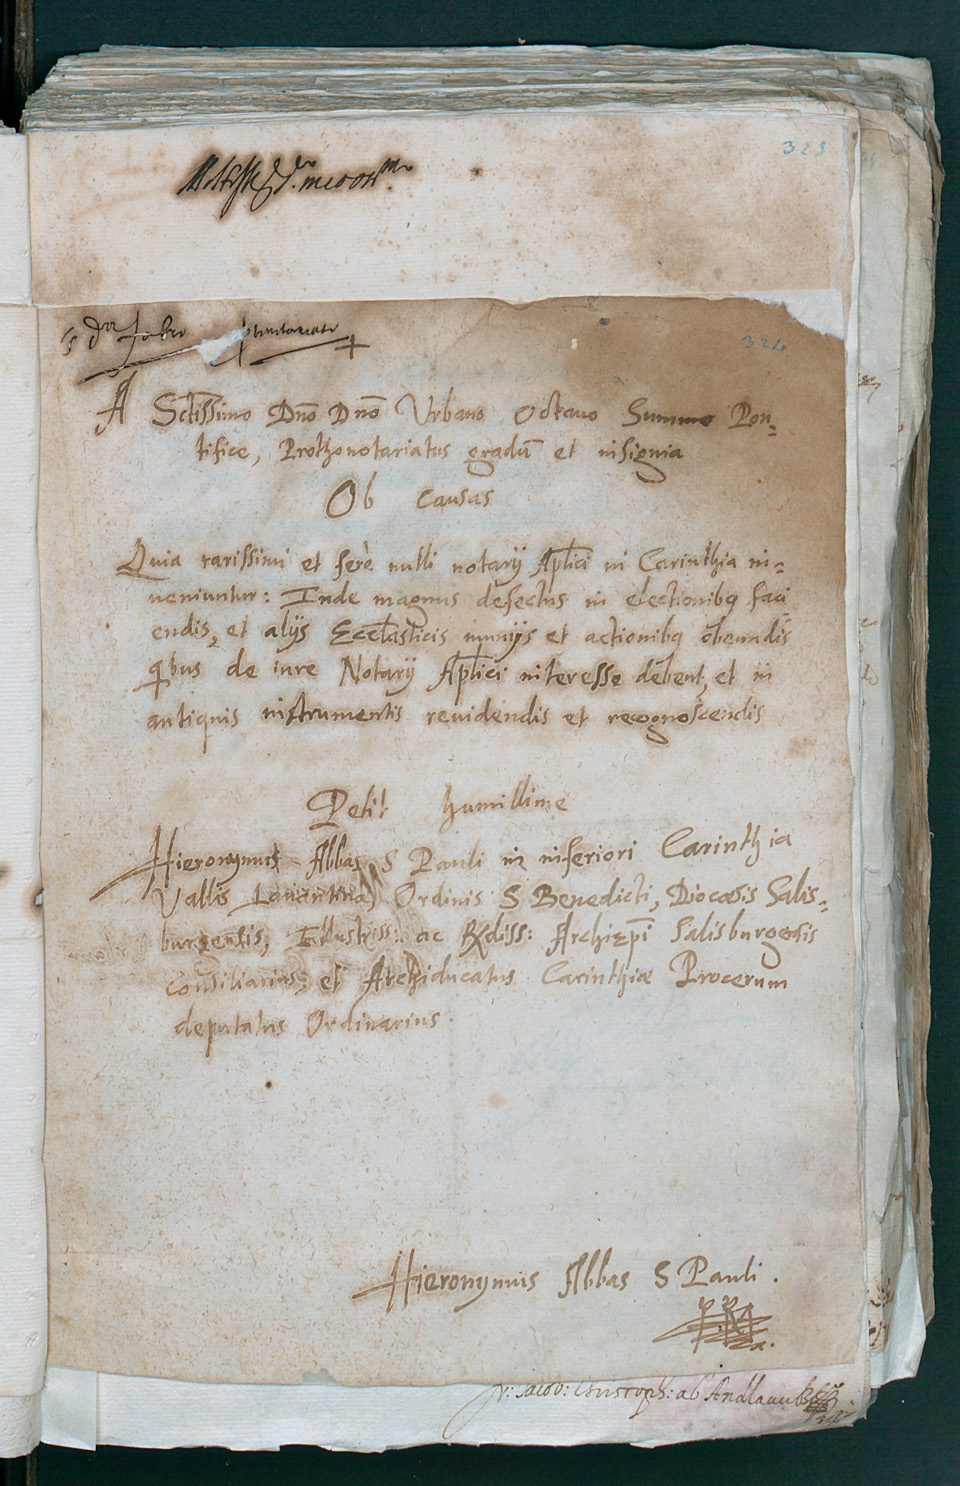 325
324
A Sctissimo Dno Dno Urbano Octavo Summo Pon-
tifice, Prothonotariatus gradu et insignia
Ob causas
Quia rarissimi et ferè nulli notarij Aplici in Carinthia in-
ueniuntur: Inde magnus defectus in electionibq faci
endis, et alijs Ecclasticis munijs et actionibq obeundis
qbus de iure Notarij Aplici interesse debent, et in
antiquis instrumentis reuidendis et recognoscendis
Petit humillime
Hieronymus Abbas S Pauli in inferiori Carinthia
Vallis Lauantinae Ordinis S Benedicti, Diocæsis Salis-
burgensis, Illustriss: ac Rdiss: Archiepi Salisburgensis
Consiliarius, et Archiducatus Carinthiæ Procerum
deputatus Ordinarius.
Hieronymus Abbas S Pauli.
Jacob: Christoph: ab Andlauu